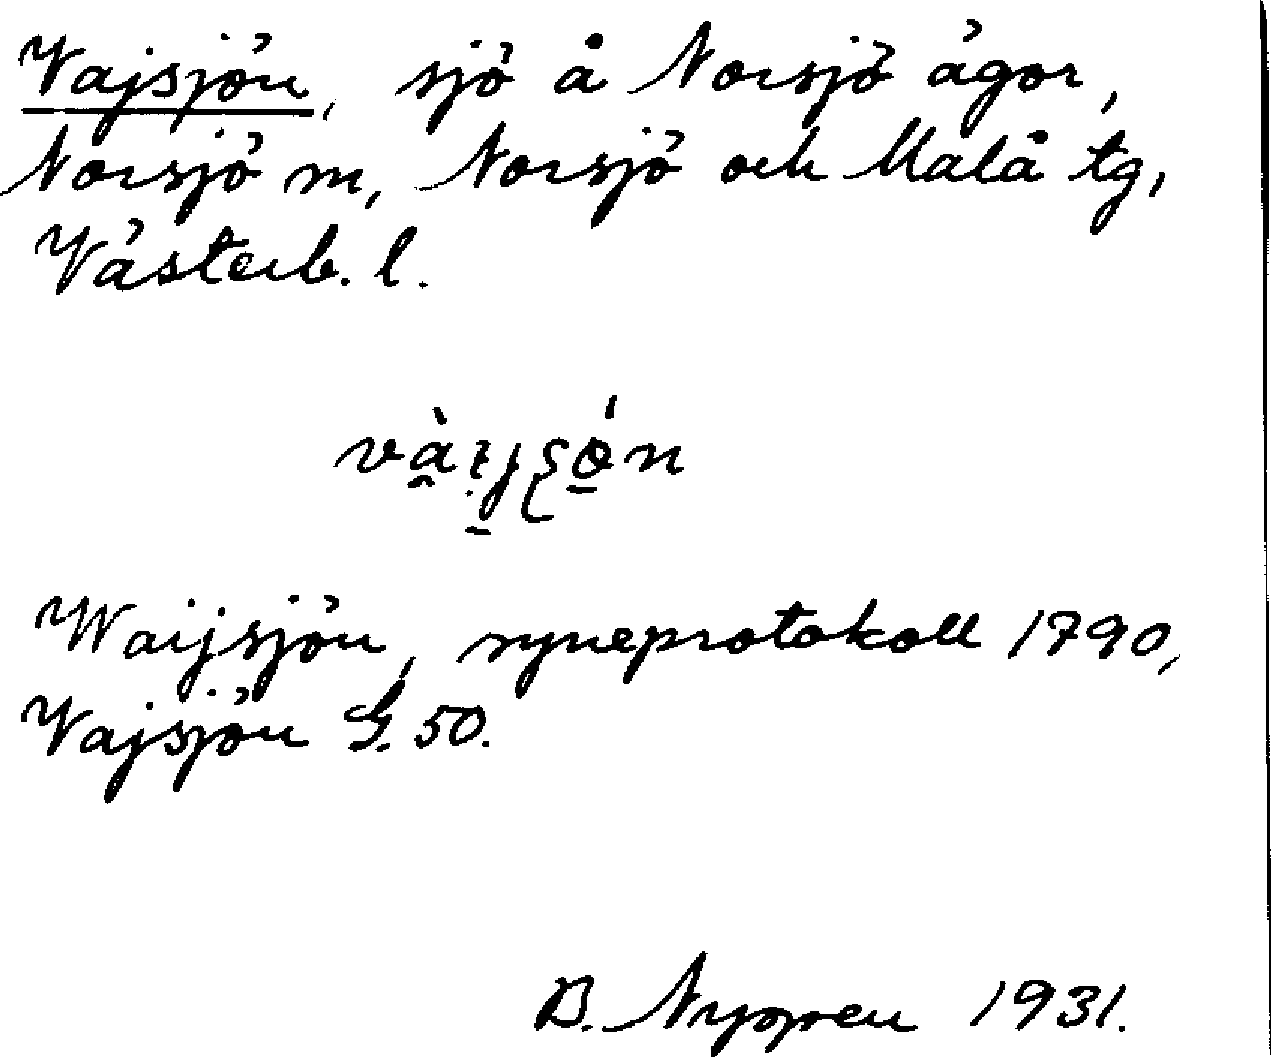 Vajsjön, sjö å Norsjö ägor,
Norsjö m, Norsjö och Malå tg,
Västerb. l.
Waijsjön, syneprotokoll 1790,
Vajsjön G. 50.
B. Nyppen 1931.